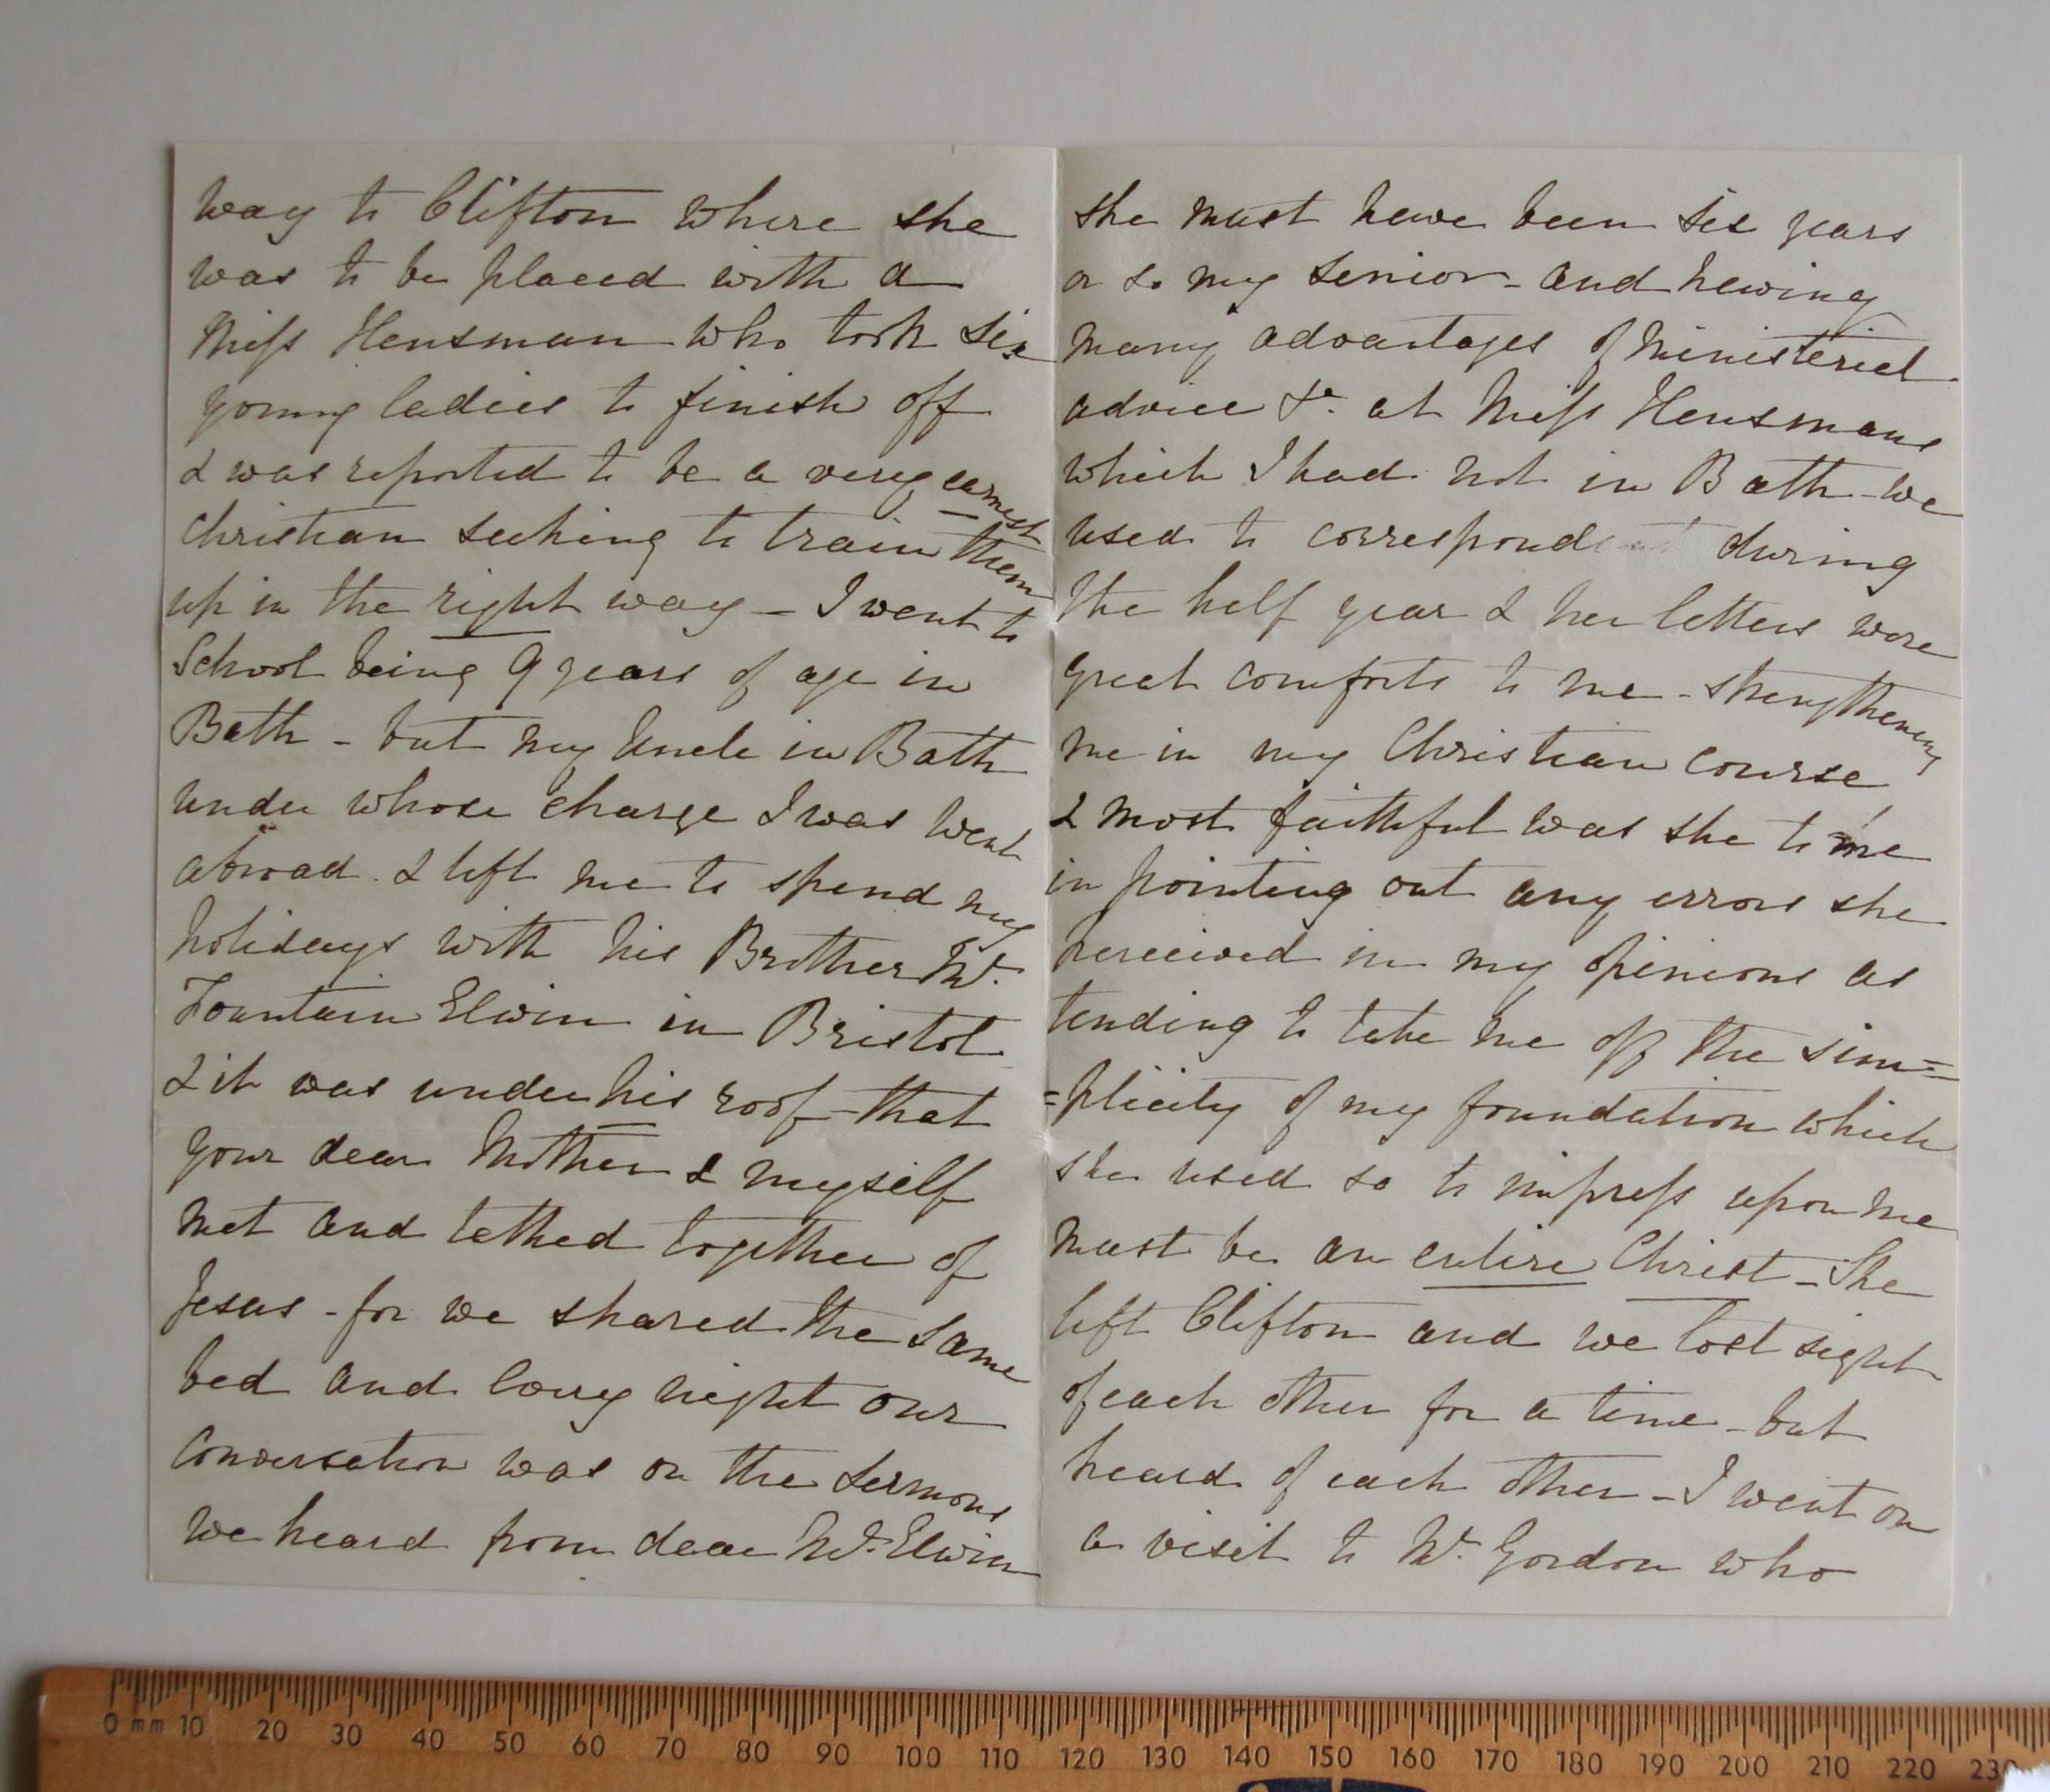 way to Clifton where she
was to be placed with a
Miss Hensman who took six
young ladies to finish off
& was reported to be a very earnest
Christian seeking to train them
up in the right way – I went to
School being 9 years of age in
Bath – but my Uncle in Bath
under whose charge I was went
abroad . & left me to spend my
holidays with his Brother Mr.
Fountain Elwin in Bristol
& it was under his roof – that
your dear Mother & myself
met and talked together of
Jesus – for we shared the same
bed and long night our
conversation was on the sermons
we heard from dear Mr. Elwin
she must have been six years
or so my senior – and having
many advantages of Ministerial
advice &c. at Miss Hensmans
which I had not in Bath – we
used to correspond during
the half year & her letters were
great comforts to me – strengthening
me in my Christian course
& most faithful was she to me
in pointing out any errors she
perceived in my opinions as
tending to take me off the sim=
=plicity of my foundation which
she used so to impress upon me
must be an entire Christ – She
left Clifton and we lost sight
of each other for a time – but
heard of each other – I went on
a visit to Mr. Gordon who
0 mm 10 20 30 40 50 60 70 80 90 100 110 120 130 140 150 160 170 180 190 200 210 220 230